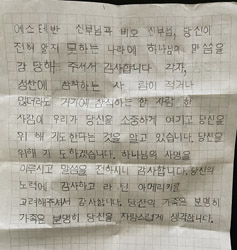 에스테반 신부님과 비오 신부님, 당신이
전혀 알지 못하는 나라에 하나님의 말씀을
감당해 주셔서 감사합니다. 각자,
성찬에 참석하는 사람이 적거나
많더라도 거기에 참석하는 한 사람 한
사람에 우리가 당신을 소중하게 여기고 당신을
위해 기도한다는 것을 알고 있습니다. 당신을
위해 기도하겠습니다. 하나님의 사명을
이루시고 말씀을 전하시니 감사합니다. 당신의
노력에 감사하고 라틴 아메리카를
고려해주셔서 감사합니다. 당신의 가족은 분명히
가족은 분명히 당신을 자랑스럽게 생각합니다.